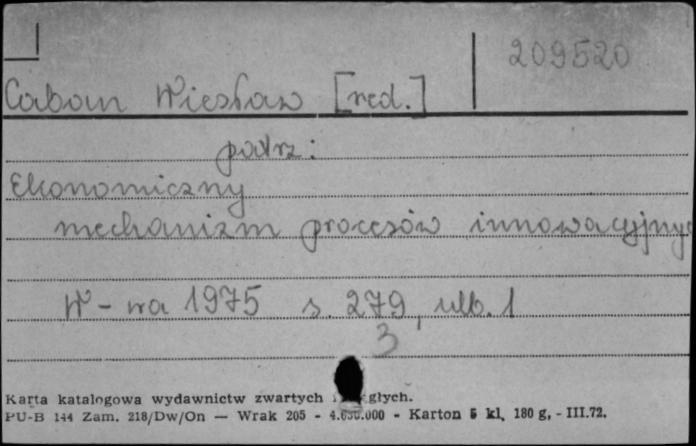 209520
Caban Wiesław [red.]
patrz:
Ekonomiczny
mechanizm procesów innowacyjny
W-wa 1975 s. 279, nlb. 1
3
Karta katalogowa wydawnictw zwartych głych.
PU-B 144 Zam. 218/Dw/On — Wrak 205 - 4.050.000 - Karton 5 kl. 180 g, - III.72.